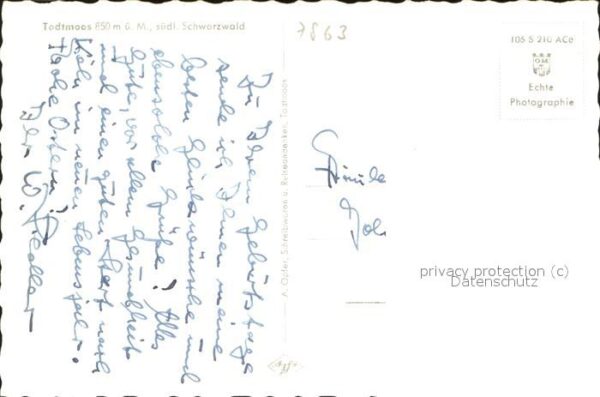 Todtmoos 850 m ü. M., südl. Schwarzwald
7863
105 S 210 ACo
Echte
Photographie
Zu Ihrem Geburtstage
sende ich Ihnen meine
besten Glückwünsche und
ebensolche Grüße! Alles
Gute, vor allem Gesundheit
und einen guten Start nach
Köln im neuen Lebensjahr.
Frohe Ostern!
Ihr W.
A. Opfer, Schreibwaren u. Reiseandenken, Todtmoos
Agfa
privacy protection (c)
Datenschutz